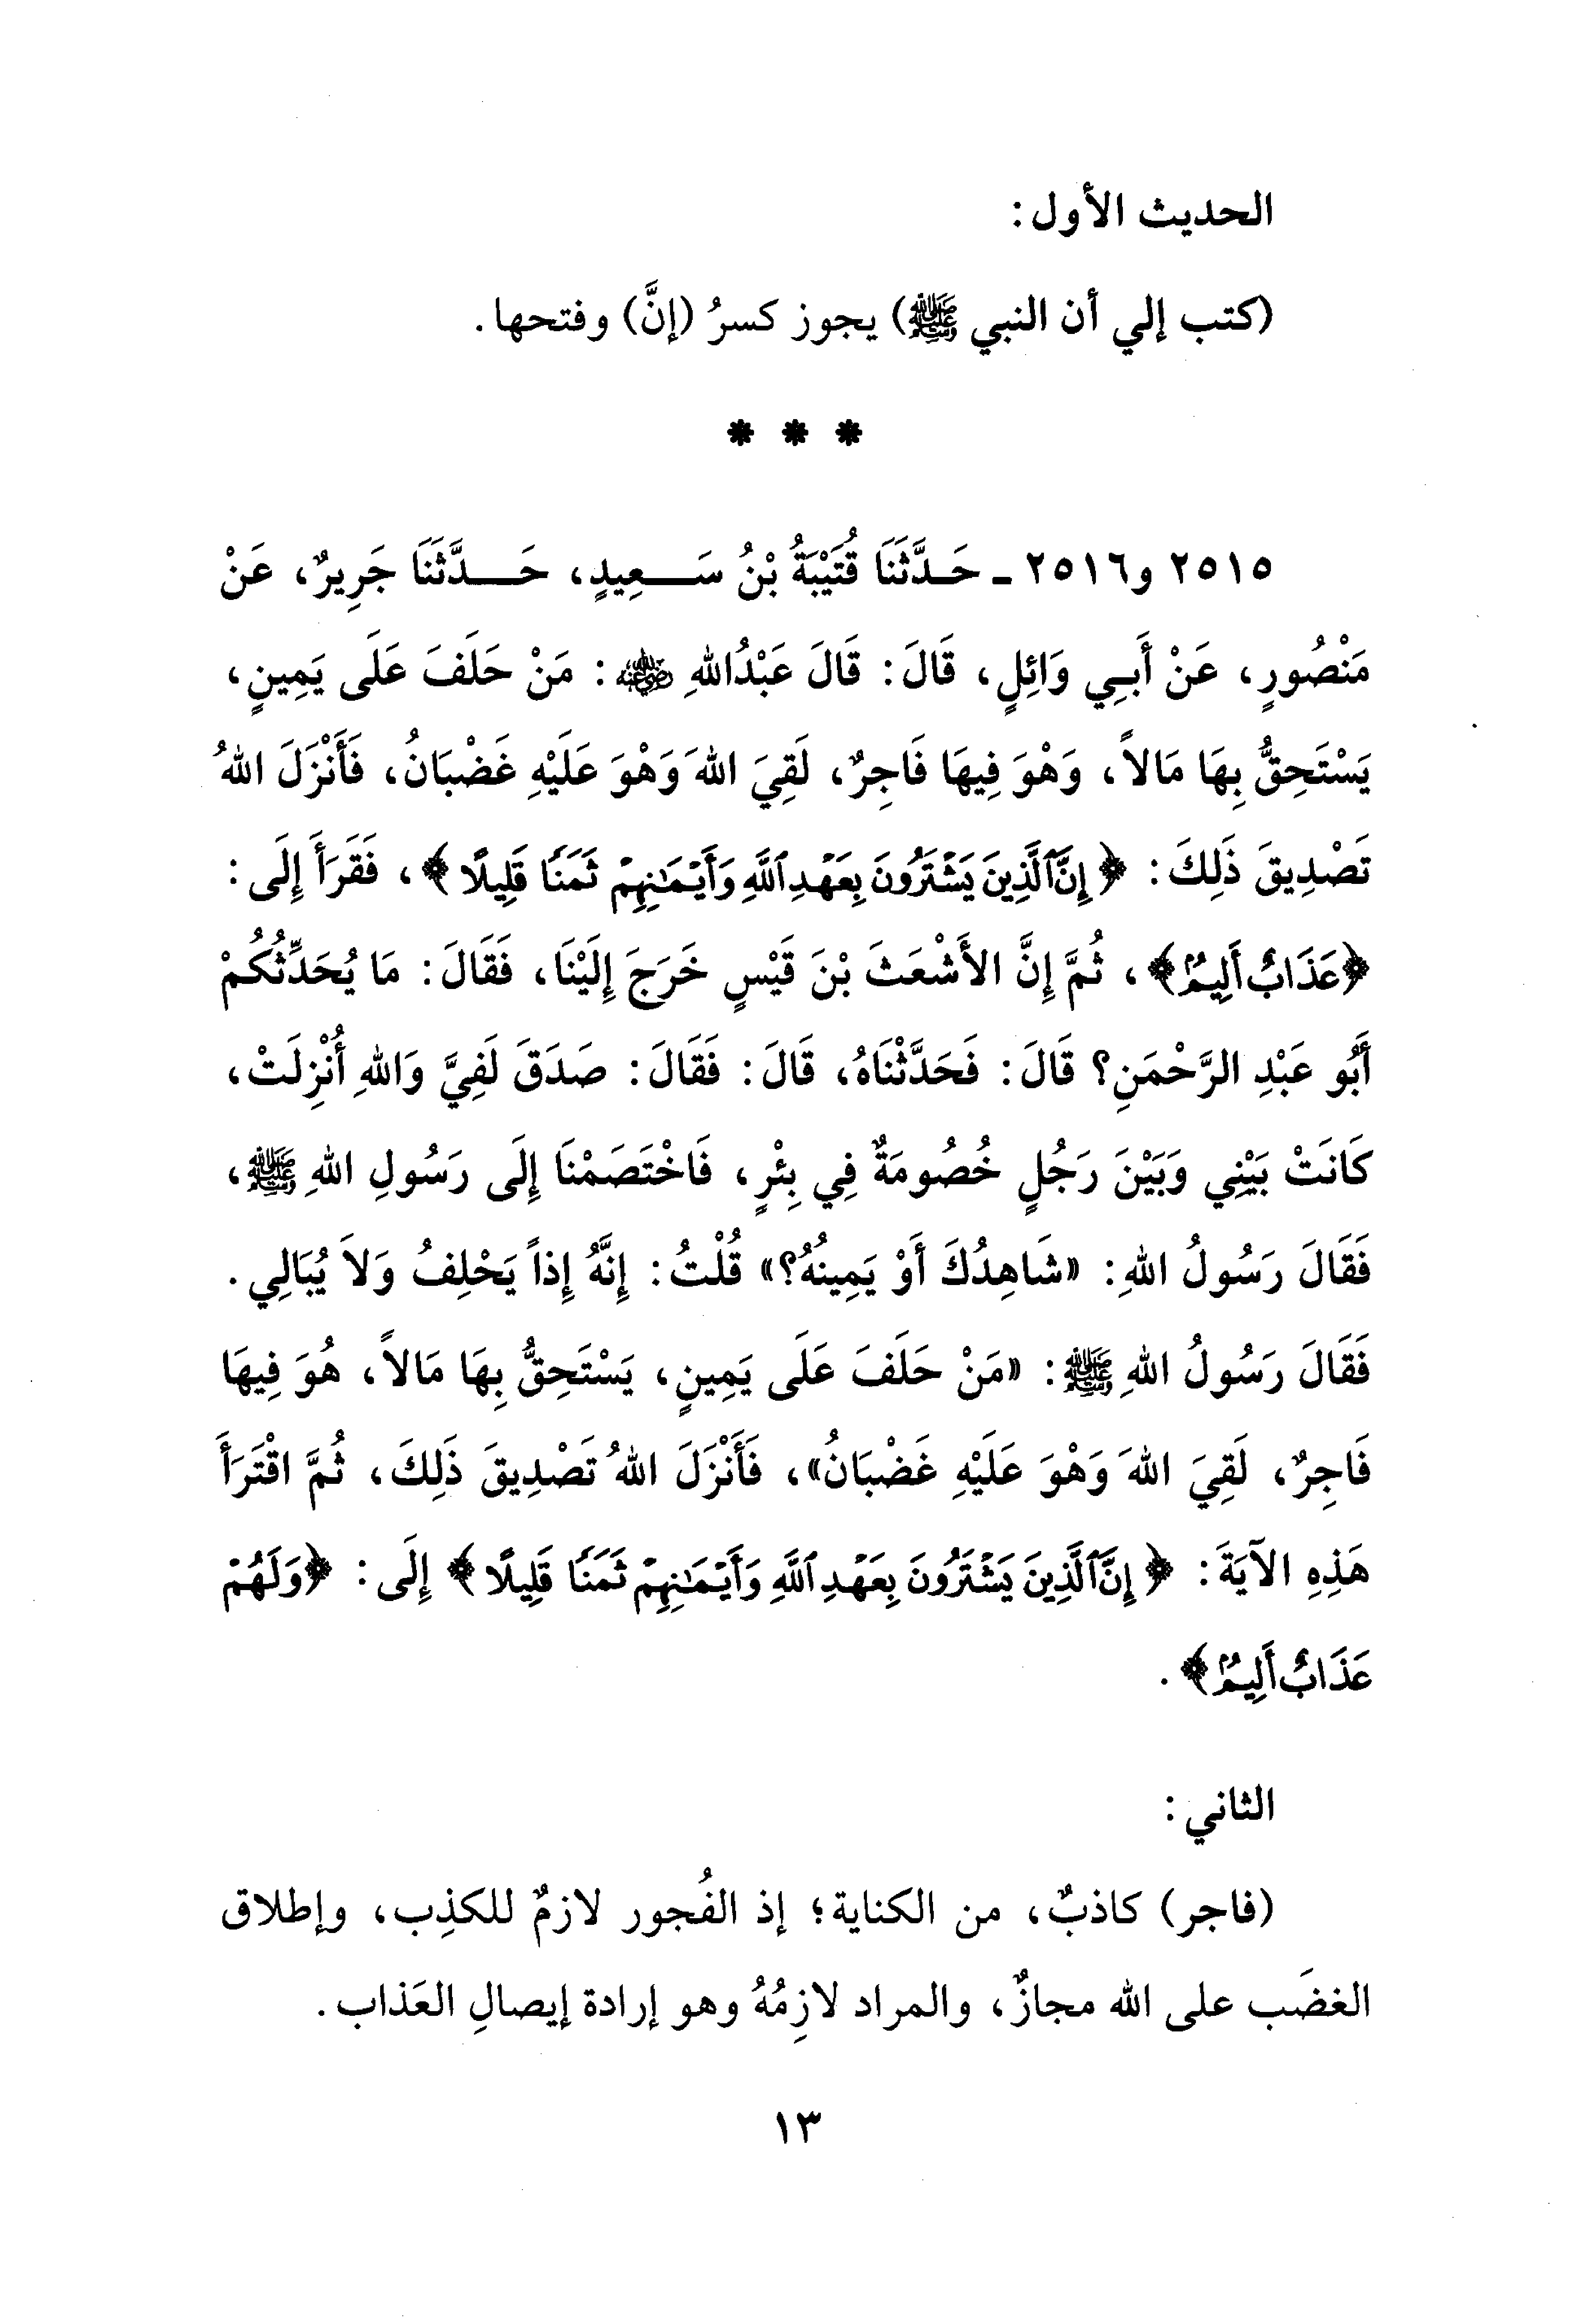 الحديث الأول:
(كتب إلي أن النبي ﷺ) يجوز كسرُ (إنَّ) وفتحها.
* * *
٢٥١٥ و٢٥١٦ ـ حَدَّثَنَا قُتَيْبَةُ بْنُ سَعِيدٍ، حَدَّثَنَا جَرِيرٌ، عَنْ
مَنْصُورٍ، عَنْ أَبِي وَائِلٍ، قَالَ: قَالَ عَبْدُاللهِ رضي الله عنه: مَنْ حَلَفَ عَلَى يَمِينٍ،
يَسْتَحِقُّ بِهَا مَالاً، وَهْوَ فِيهَا فَاجِرٌ، لَقِيَ اللهَ وَهْوَ عَلَيْهِ غَضْبَانُ، فَأَنْزَلَ اللهُ
تَصْدِيقَ ذَلِكَ: ﴿إِنَّ ٱلَّذِينَ يَشْتَرُونَ بِعَهْدِ ٱللَّهِ وَأَيْمَٰنِهِمْ ثَمَنًا قَلِيلًا﴾، فَقَرَأَ إِلَى:
﴿عَذَابٌ أَلِيمٌ﴾، ثُمَّ إِنَّ الأَشْعَثَ بْنَ قَيْسٍ خَرَجَ إِلَيْنَا، فَقَالَ: مَا يُحَدِّثُكُمْ
أَبُو عَبْدِ الرَّحْمَنِ؟ قَالَ: فَحَدَّثْنَاهُ، قَالَ: فَقَالَ: صَدَقَ لَفِيَّ وَاللهِ أُنْزِلَتْ،
كَانَتْ بَيْنِي وَبَيْنَ رَجُلٍ خُصُومَةٌ فِي بِئْرٍ، فَاخْتَصَمْنَا إِلَى رَسُولِ اللهِ ﷺ،
فَقَالَ رَسُولُ اللهِ: «شَاهِدُكَ أَوْ يَمِينُهُ؟» قُلْتُ: إِنَّهُ إِذاً يَحْلِفُ وَلاَ يُبَالِي.
فَقَالَ رَسُولُ اللهِ ﷺ: «مَنْ حَلَفَ عَلَى يَمِينٍ، يَسْتَحِقُّ بِهَا مَالاً، هُوَ فِيهَا
فَاجِرٌ، لَقِيَ اللهَ وَهْوَ عَلَيْهِ غَضْبَانُ»، فَأَنْزَلَ اللهُ تَصْدِيقَ ذَلِكَ، ثُمَّ اقْتَرَأَ
هَذِهِ الآيَةَ: ﴿إِنَّ ٱلَّذِينَ يَشْتَرُونَ بِعَهْدِ ٱللَّهِ وَأَيْمَٰنِهِمْ ثَمَنًا قَلِيلًا﴾ إِلَى: ﴿وَلَهُمْ
عَذَابٌ أَلِيمٌ﴾.
الثاني:
(فاجر) كاذبٌ، من الكناية؛ إذ الفُجور لازمٌ للكذِب، وإطلاق
الغضَب على الله مجازٌ، والمراد لازِمُهُ وهو إرادة إيصالِ العَذاب.
١٣